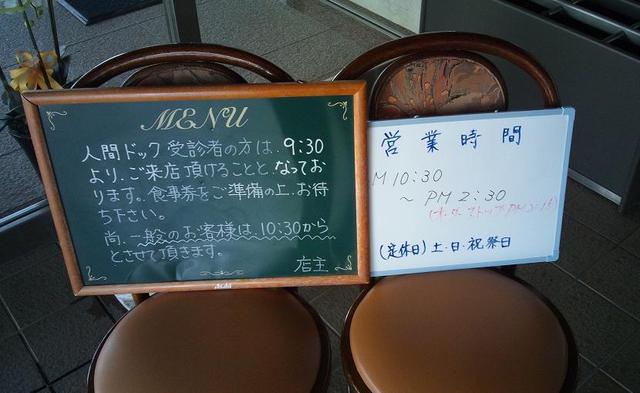 MENU
人間ドック受診者の方は、9:30
より、ご来店頂けることと、なってお
ります。食事券をご準備の上、お待
ち下さい。
尚、一般のお客様は、10:30から
とさせて頂きます。
店主
Asahi
営業時間
M 10:30
～ PM 2:30
(定休日) 土・日・祝祭日